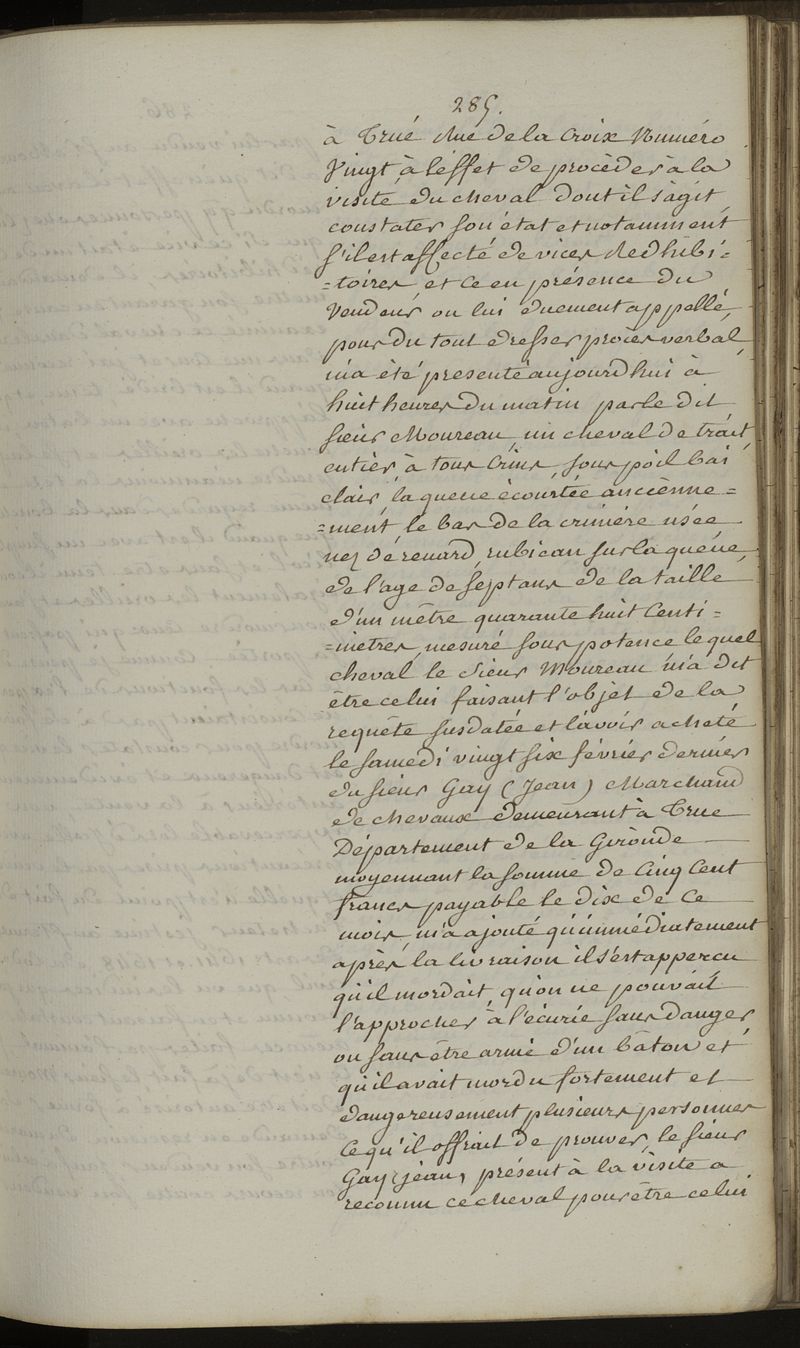 285.
à Crué Rue de la Croix Numéro
Vingt à l'effet de procèder à la
visité du cheval dont il s'agit,
constater son état et notamment
s'il est affecté de vices Redhibi=
=toires et ce en présence du
Vendeur ou lui duement appellé,
pour du tout dresser procès verbal,
m'a èté presenté aujourd'hui à
huit heures du matin par le dit
sieur Moureau, un cheval de trait,
entier à tous Crins, sous poil bai
clair, la queue écourtée anciènne=
=ment, le bas de la crinière usée
nez de renard, rubican sur la queue,
de l'age de sept ans de la taille
d'un mêtre quarante huit Centi=
=mètres, mesuré sous potence le quel
cheval le Sieur Moureau m'a dit
être celui faisant l'objet de la
requête susdatée et l'avoir acheté
le samedi vingt six février dernier
du sieur Gay (Jean) Marchand
de chevaux demeurant à Crue
Département de la Gironde
moyennant la somme de Cinq Cent
francs payable le dix de ce
mois, m'a ajouté qu'immédiatement
après la livraison il s'est appercu
qu'il mordait, qu'on ne pouvait
l'approcher à l'écurie sans danger
ou sans être armé d'un bâton et
qu'il avait mordu fortement et
dangereusement plusieurs personnes
Ce qu'il offrait de prouver, le sieur
Gay (jean) présent à la visite a
reconnu ce cheval pour être celui